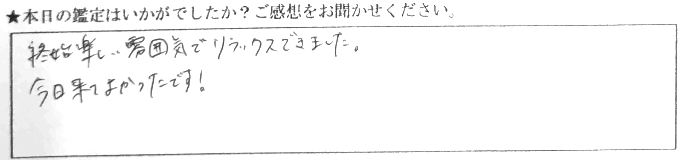 ★本日の鑑定はいかがでしたか？ご感想をお聞かせください。
終始楽しい雰囲気でリラックスできました。
今日来てよかったです！